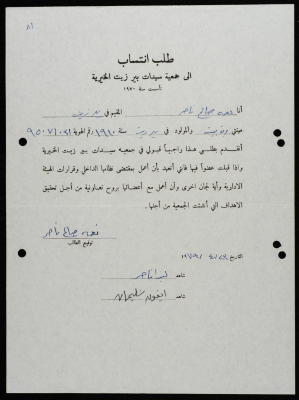 ٨١
طلب انتساب
الى جمعية سيدات بير زيت الخيرية
تأسست سنة ١٩٧٠
أنا نعمه صالح ناصر المقيم في بير زيت
مهنتي والمولود في بير زيت سنة ١٩١٠ رقم الهوية
أتقدم بطلبي هذا راجياً قبولي في جمعية سيدات بير زيت الخيرية
واذا قبلت عضواً فيها فاني أتعهد بأن أعمل بمقتضى نظامها الداخلي وقرارات الهيئة
الادارية وأية لجان اخرى وأن أعمل مع أعضائها بروح تعاونية من أجل تحقيق
الاهداف التي أنشئت الجمعية من أجلها.
نعمه صالح ناصر
توقيع الطالب
التاريخ
شاهد ناصر
شاهد ايفون سليمان